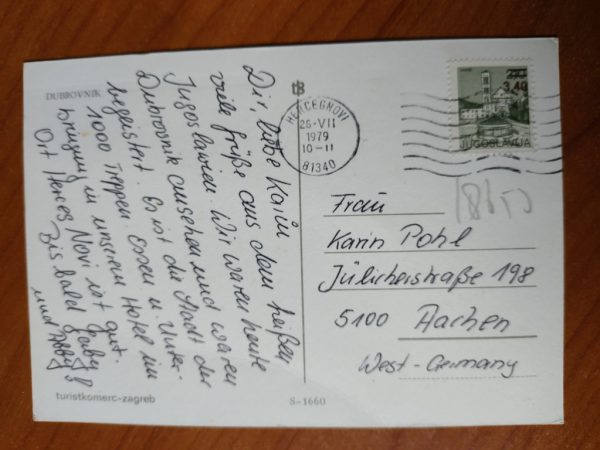 DUBROVNIK
Dir, liebe Karin
viele Grüße aus dem heißen
Jugoslawien. Wir waren heute
Dubrovnik ansehen und waren
begeistert. Es ist die Stadt der
1000 Treppen. Essen u. Unter-
bringung in unserem Hotel im
Ort Herceg Novi ist gut.
Bis bald Gaby
und
turistkomerc-zagreb
HERCEGNOVI
26-VII
1979
10-11
81340
3,40
JUGOSLAVIJA
Frau
Karin Pohl
Jülicherstraße 198
5100 Aachen
West-Germany
S-1660